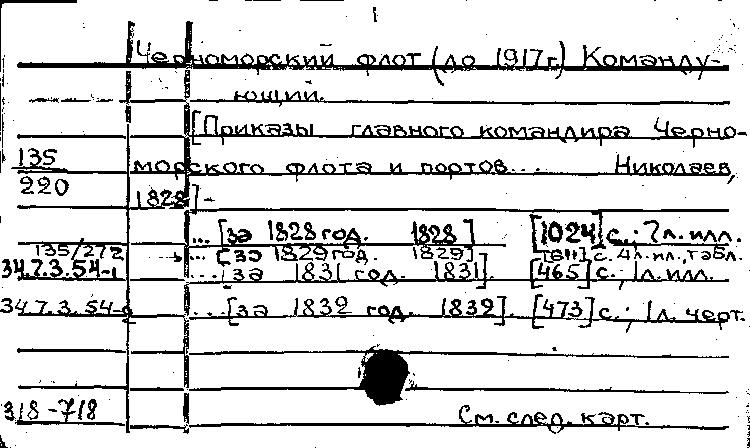 Черноморский флот (до 1917г.) Команду-
ющий.
[Приказы главного командира Черно-
135
220
морского флота и портов... Николаев,
1828] -
... [за 1828 год. 1828] [1024] с.; 7л. илл.
135/272 ... [за 1829 год. 1829] [811] с. 4л. ил., табл.
34.7.3.54-1 ... [за 1831 год. 1831]. [465] с.; 1л. илл.
34.7.3.54-2 ... [за 1832 год. 1832]. [473] с.; 1л. черт.
318-718 См. след. карт.